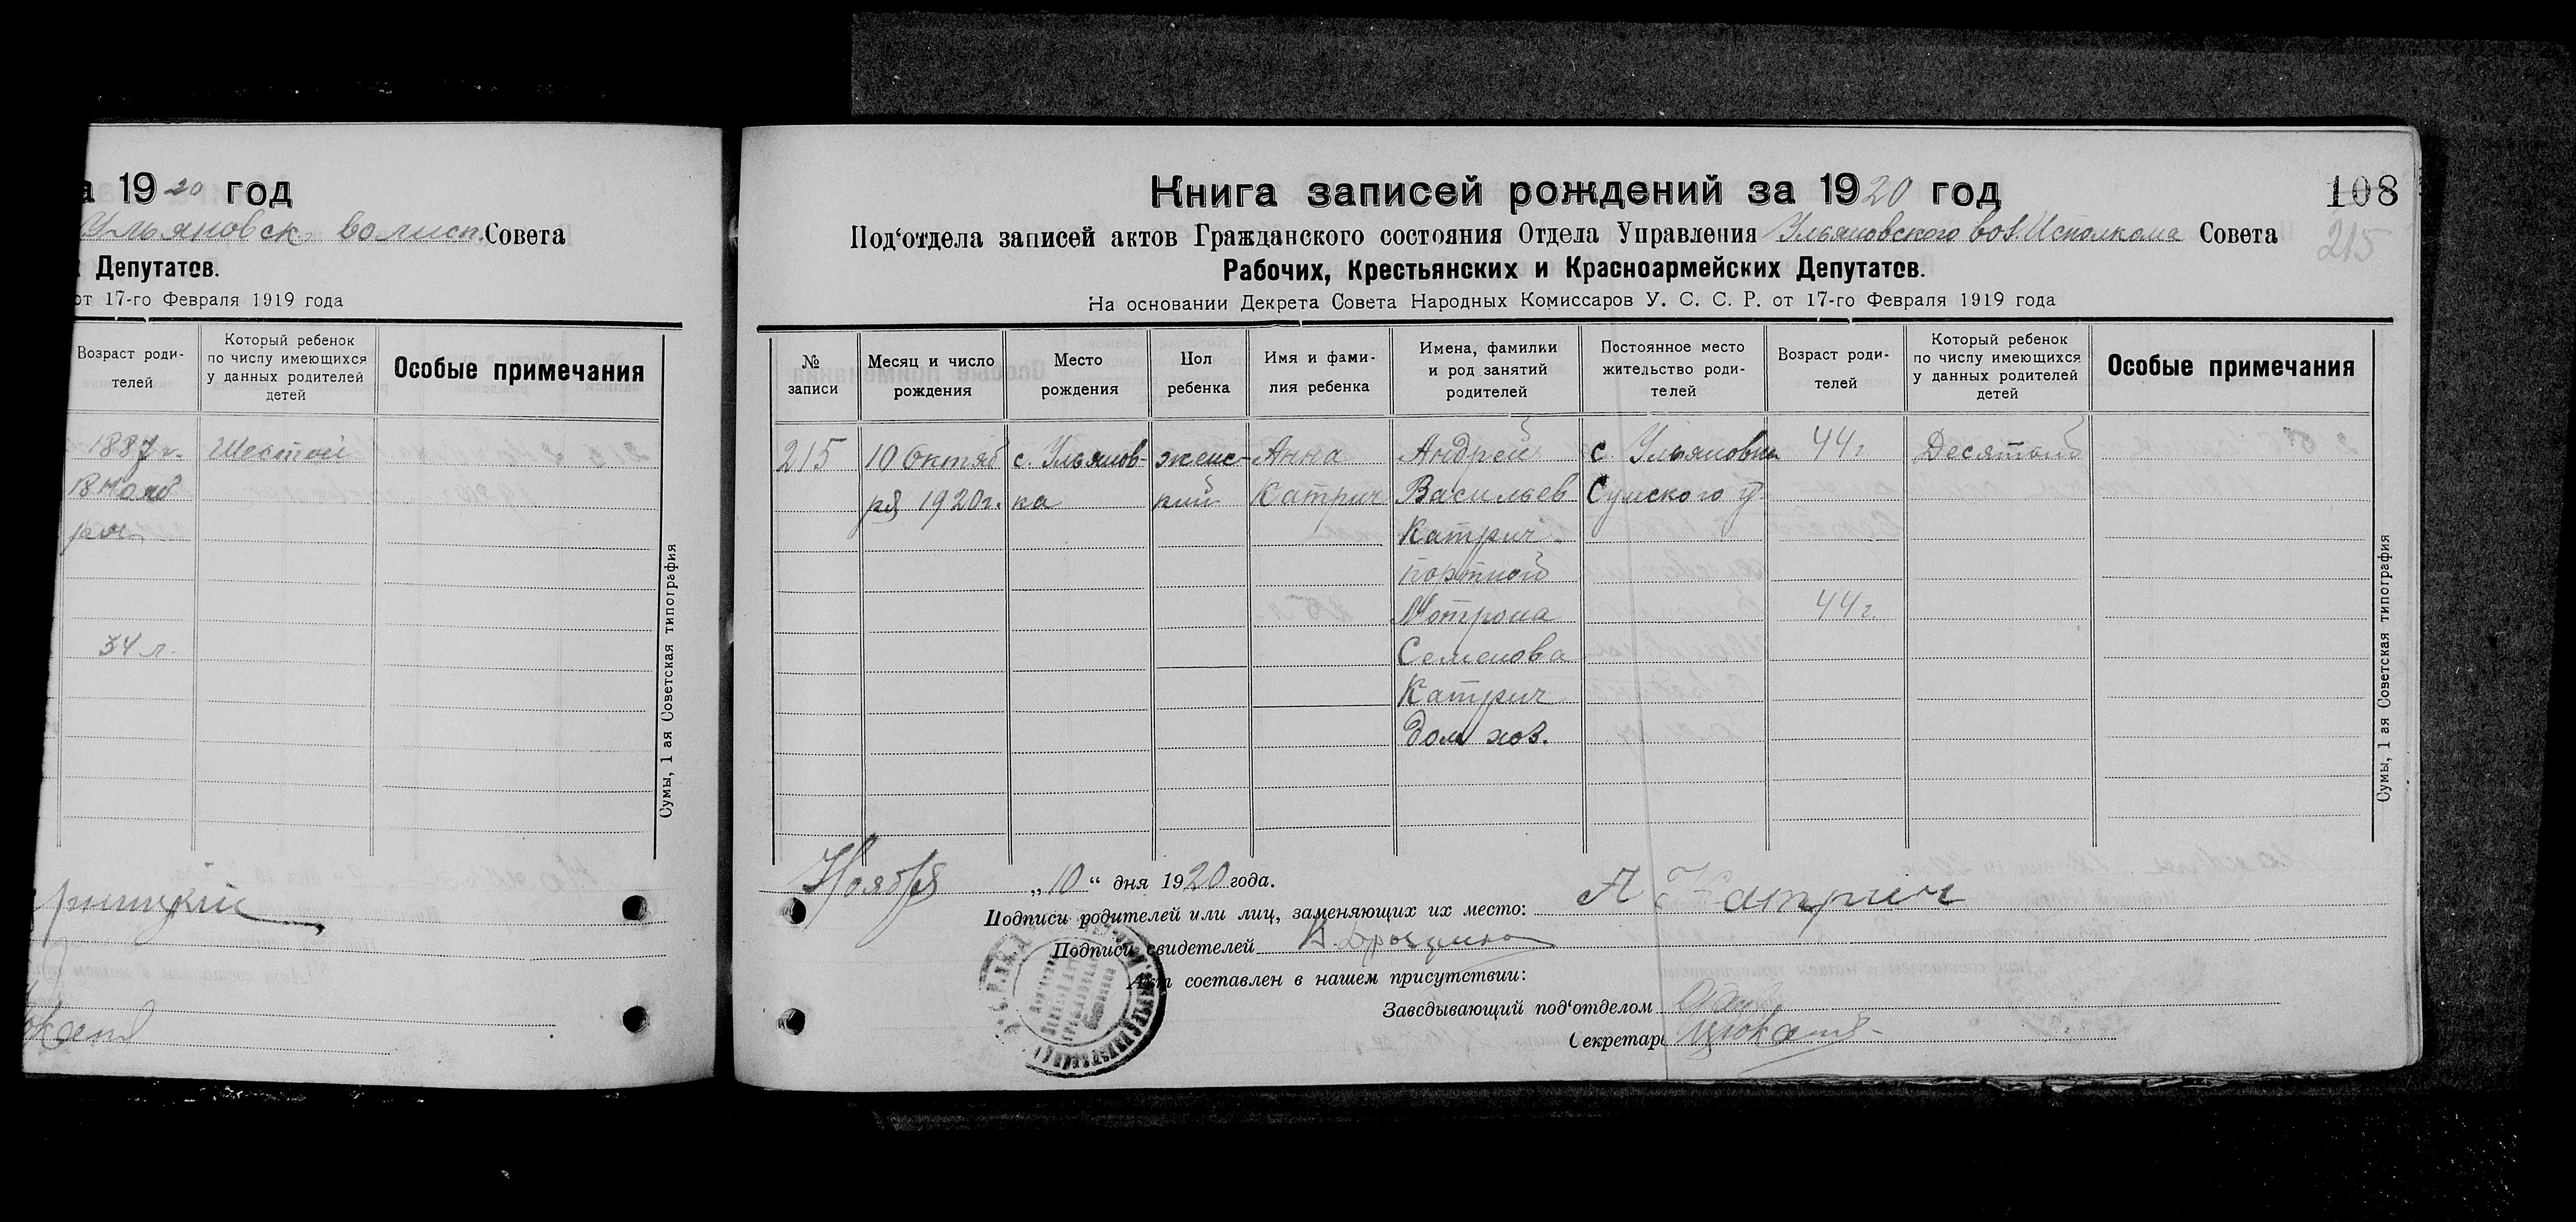 а 1920 год
Ульяновск волисп. Совета
Депутатов.
от 17-го Февраля 1919 года
Возраст роди-
телей
Который ребенок
по числу имеющихся
у данных родителей
детей
Особые примечания
1887 г. Шестой
34 л.
Сумы, 1 ая Советская типография
Книга записей рождений за 1920 год
108
215
Под‘отдела записей актов Гражданского состояния Отдела Управления Ульяновского вол. Исполкома Совета
Рабочих, Крестьянских и Красноармейских Депутатов.
На основании Декрета Совета Народных Комиссаров У. С. С. Р. от 17-го Февраля 1919 года
№
записи
Месяц и число
рождения
Место
рождения
Пол
ребенка
Имя и фами-
лия ребенка
Имена, фамилии
и род занятий
родителей
Постоянное место
жительство роди-
телей
Возраст роди-
телей
Который ребенок
по числу имеющихся
у данных родителей
детей
Особые примечания
215 10 Октяб с. Ульянов- женс- Анна Андрей с. Ульяновка 44 г Десятый
ря 1920 г. ка кий Катрич Васильев Сумского у.
Катрич
портной
Мотрона 44 г.
Семенова
Катрич
дом хоз.
Сумы, 1 ая Советская типография
Ноября „10“ дня 1920 года.
Подписи родителей или лиц, заменяющих их место: А Катрич
Подписи свидетелей
Акт составлен в нашем присутствии:
Заведывающий под‘отделом
Секретарь